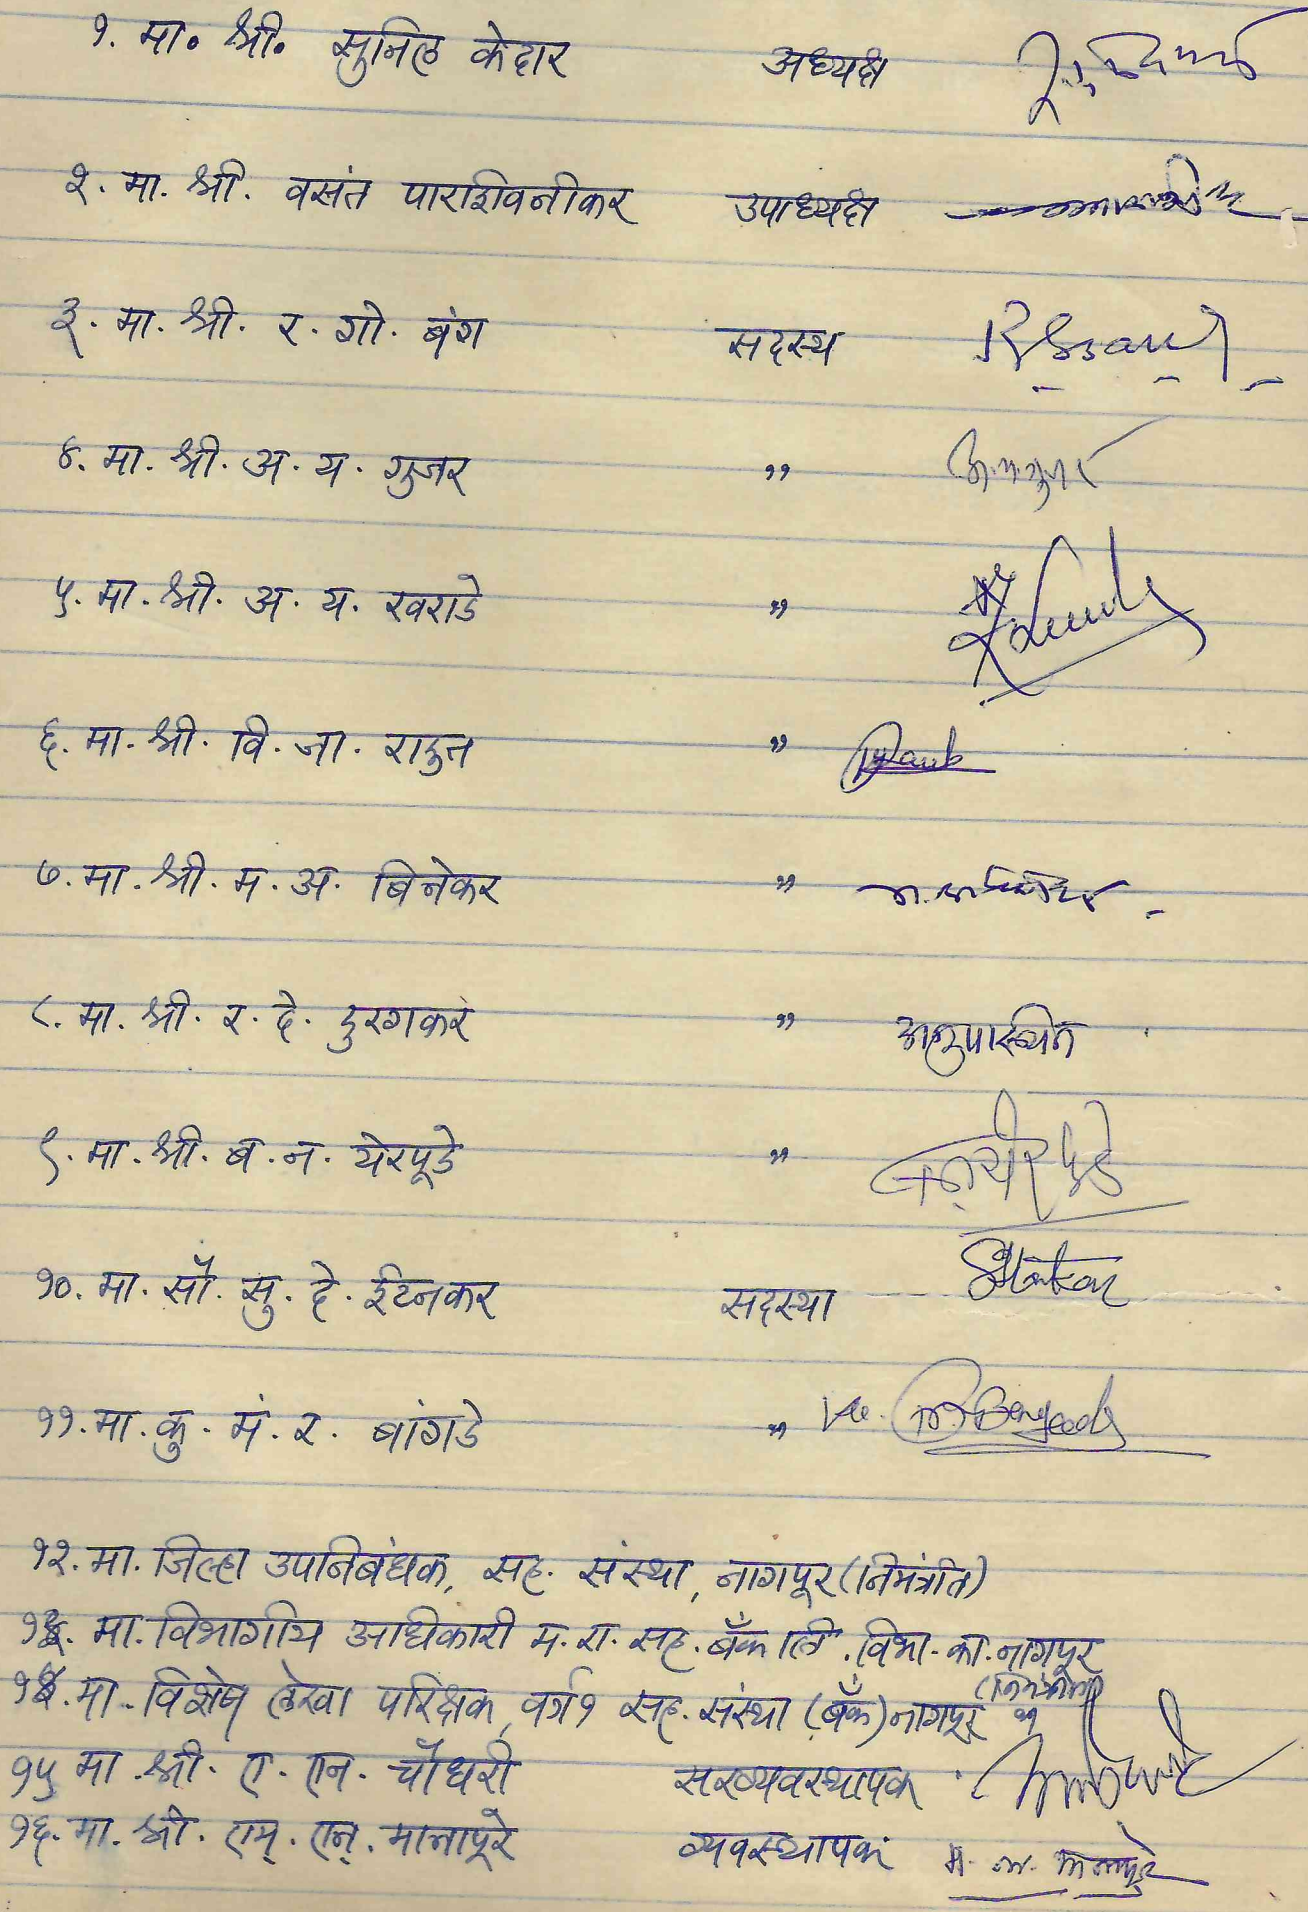 १. मा. श्री. सुनिल केदार अध्यक्ष
२. मा. श्री. वसंत पाराशिवनीकर उपाध्यक्ष
३. मा. श्री. र. गो. बंग सदस्य
४. मा. श्री. अ. य. गुजर ,,
५. मा. श्री. अ. य. खराडे ,,
६. मा. श्री. वि. जा. राऊत ,,
७. मा. श्री. म. अ. बिनेकर ,,
८. मा. श्री. र. दे. दुरुगकर ,, अनुपास्थित
९. मा. श्री. ब. न. येरपूडे ,, येरपुडे
१०. मा. सौ. सु. दे. ईटनकर सदस्या
११. मा. कु. मं. र. बांगडे ,, Ku.
१२. मा. जिल्हा उपनिबंधक, सह. संस्था, नागपूर (निमंत्रीत)
१३. मा. विभागीय आधीकारी म. रा. सह. बँक लि. विभा. का. नागपूर
(निमंत्रीत)
१४. मा. विशेष लेखा परिक्षक, वर्ग १ सह. संस्था (बँक) नागपूर ,,
१५ मा. श्री. ए. एन. चौधरी सरव्यवस्थापक
१६. मा. श्री. एम्. एन्. मानापूरे व्यवस्थापक